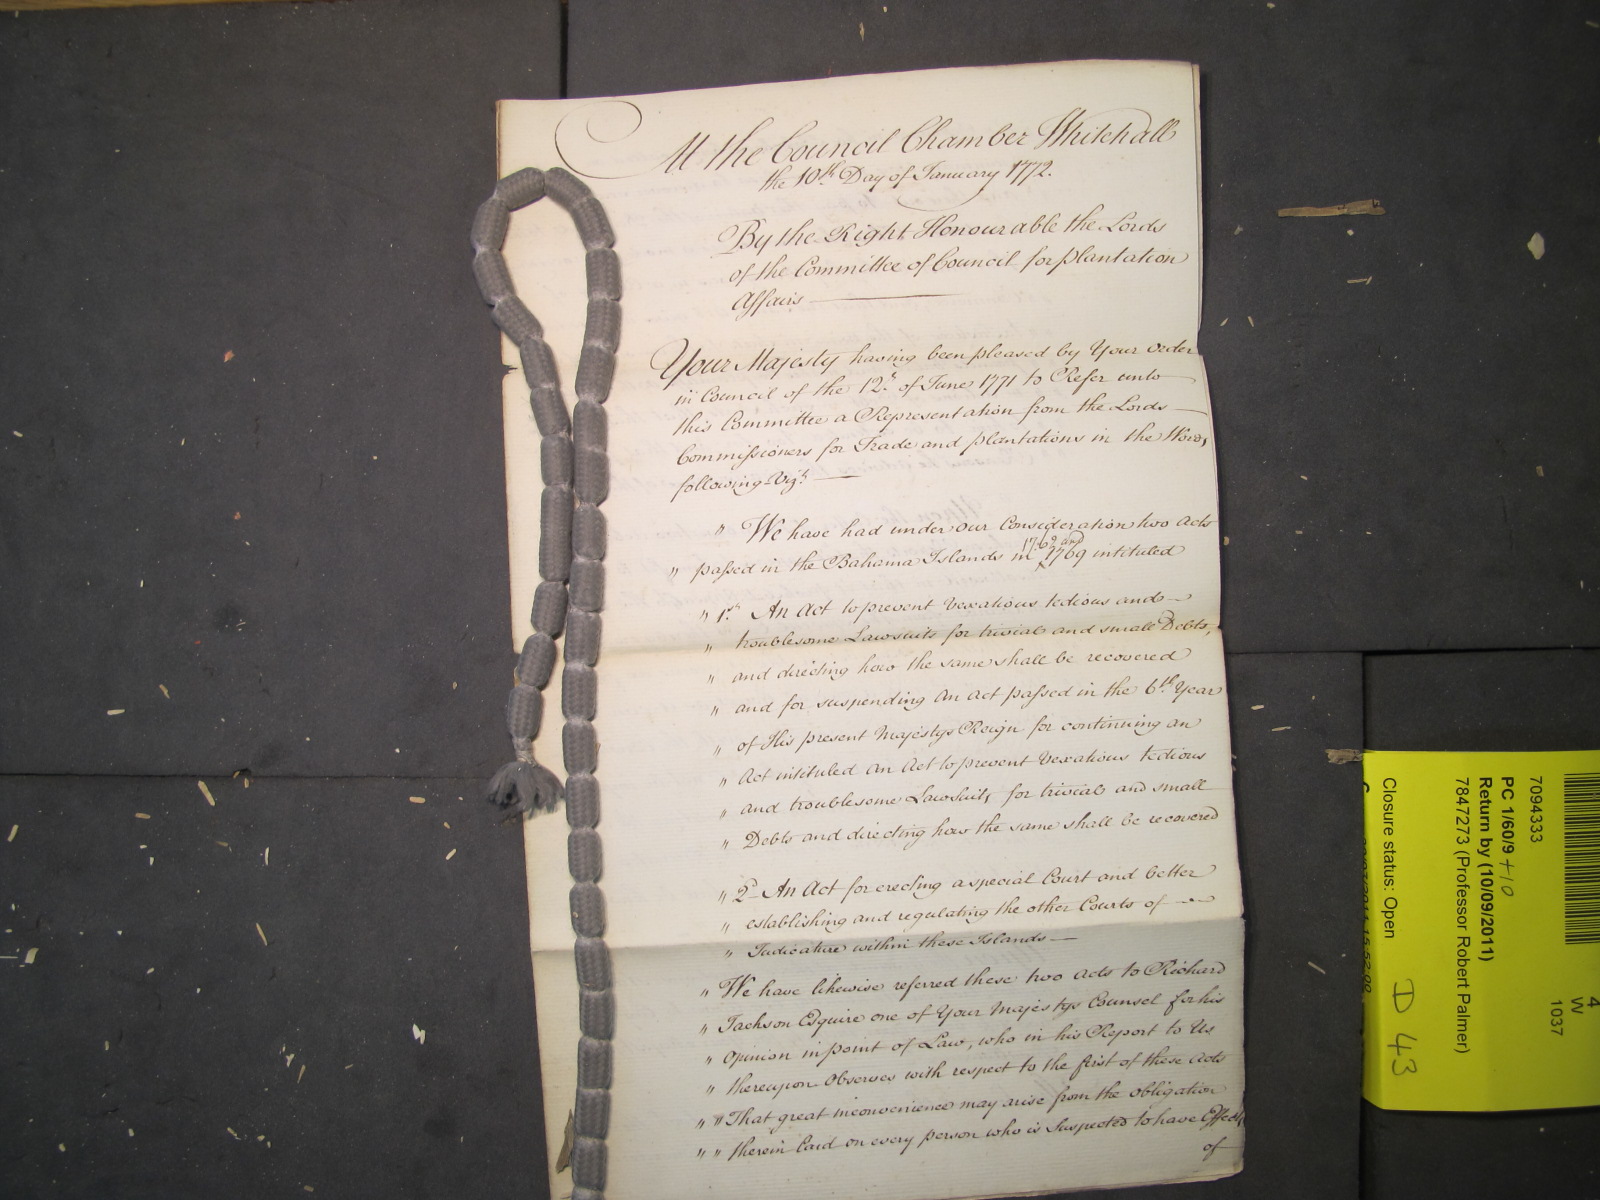 At the Council Chamber Whitehall
the 10th. Day of January 1772.
By the Right Honourable the Lords
of the Committee of Council for plantation
Affairs
Your Majesty having been pleased by Your Order
in Council of the 12th. of June 1771 to Refer unto
this Committee a Representation from the Lords
Commissioners for Trade and plantations in the Words
following Vizt.
" We have had under our Consideration two Acts
" passed in the Bahama Islands in 1769 intituled
" 1st. An Act to prevent Vexatious tedious and
" troublesome Lawsuits for trivial and small Debts,
" and directing how the same shall be recovered
" and for suspending an Act passed in the 6th. Year
" of His present Majestys Reign for continuing an
" Act intituled an Act to prevent Vexatious tedious
" and troublesome Lawsuits for trivial and small
" Debts and directing how the same shall be recovered
" 2d An Act for erecting a special Court and better
" establishing and regulating the other Courts of
" Judicature within these Islands
" We have likewise referred these two Acts to Richard
" Jackson Esquire one of Your Majestys Counsel for his
" Opinion in point of Law, who in his Report to Us
" thereupon Observes with respect to the first of these Acts
" " That great inconvenience may arise from the obligation
" " therein laid on every person who is suspected to have Effects
of
4
W
1037
7094333
PC 1/60/9 +10
Return by (10/09/2011)
7847273 (Professor Robert Palmer)
Closure status: Open
D 43